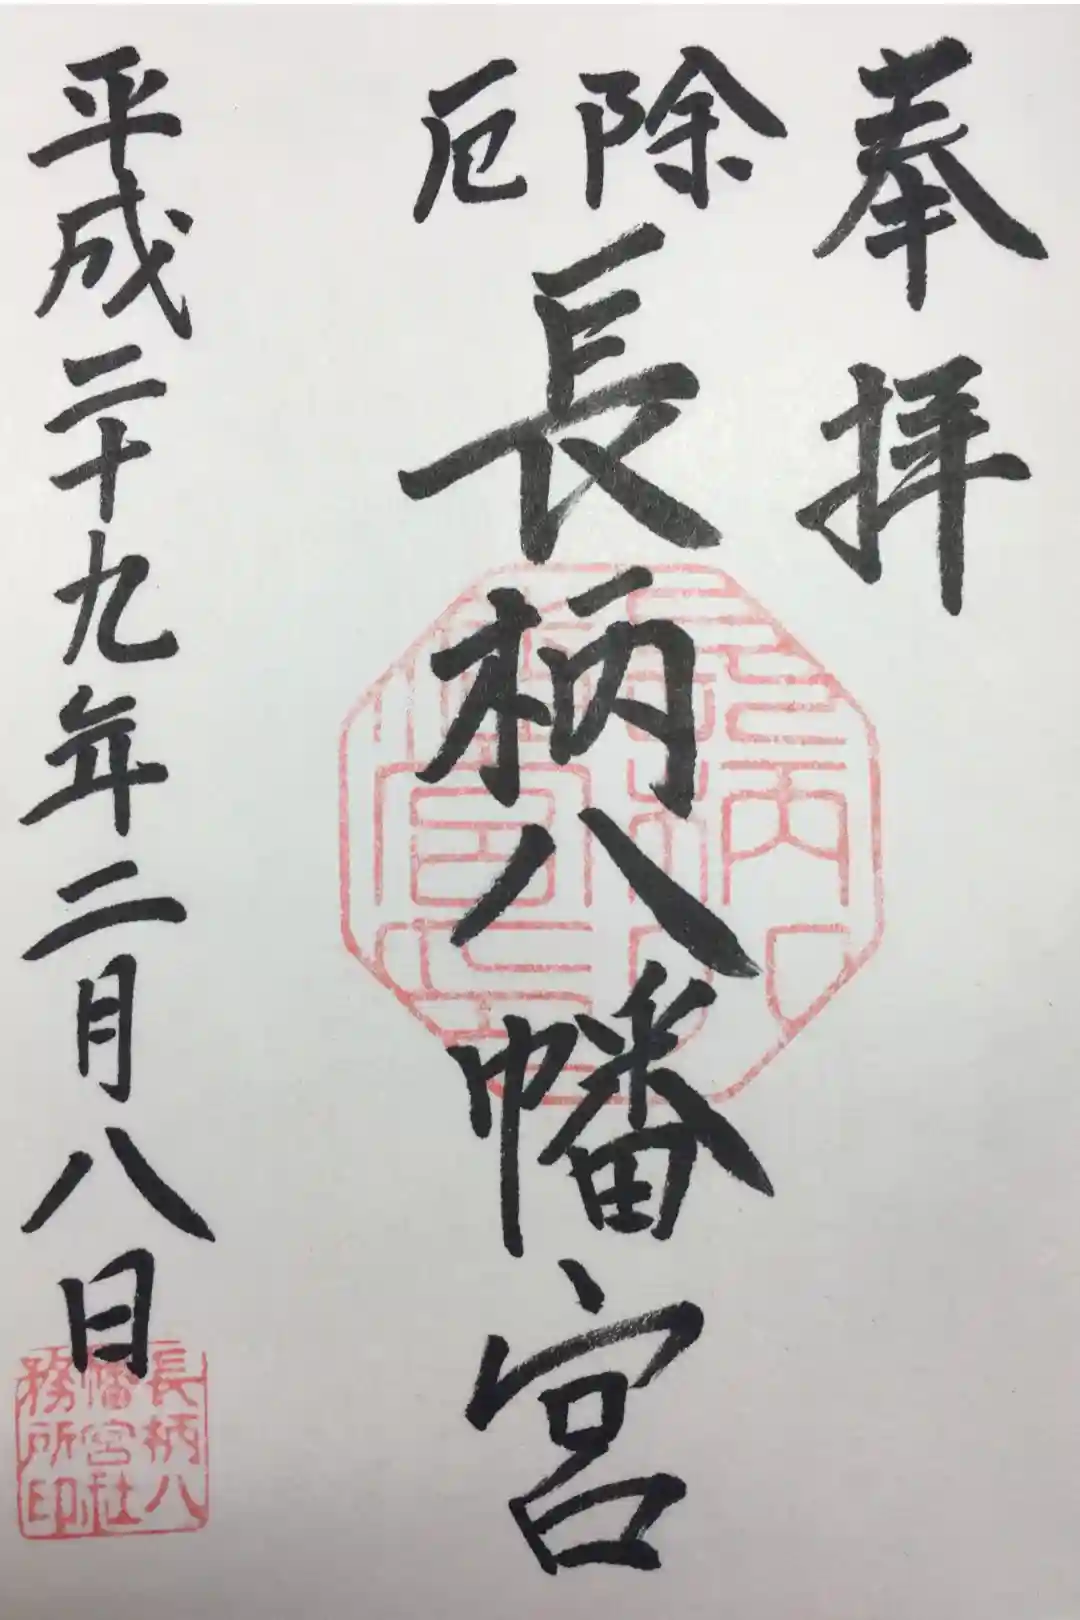 奉拝
除厄
長柄八幡宮
平成二十九年二月八日
長柄八
幡宮社
務所印